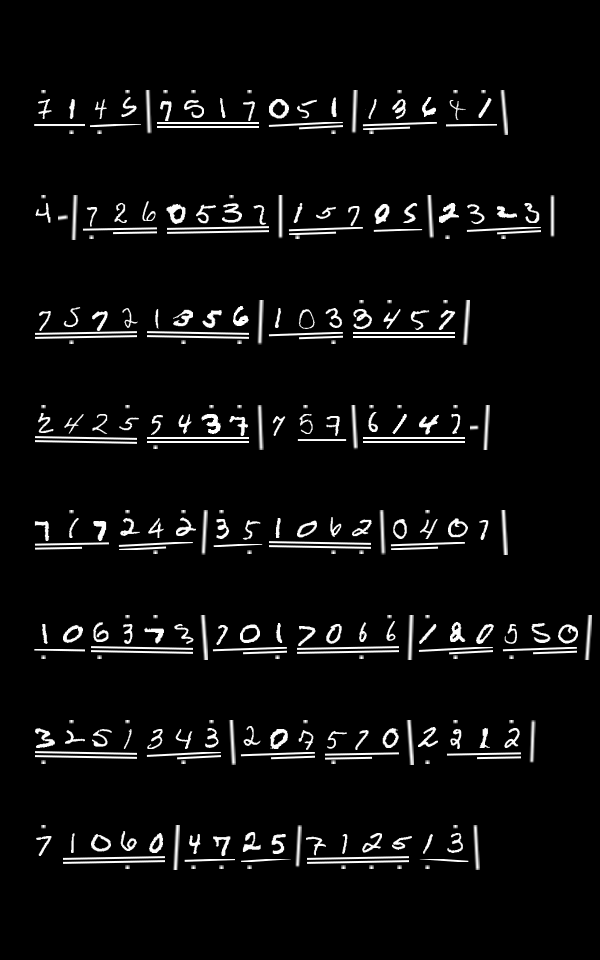 7145|7517051|13641
4-|7260537|15705|2323
75721356|1033457
24255437|757|6147-
717242|351062|0407
106373|7017066|120550
3251343|207570|2212
71060|4725|712513